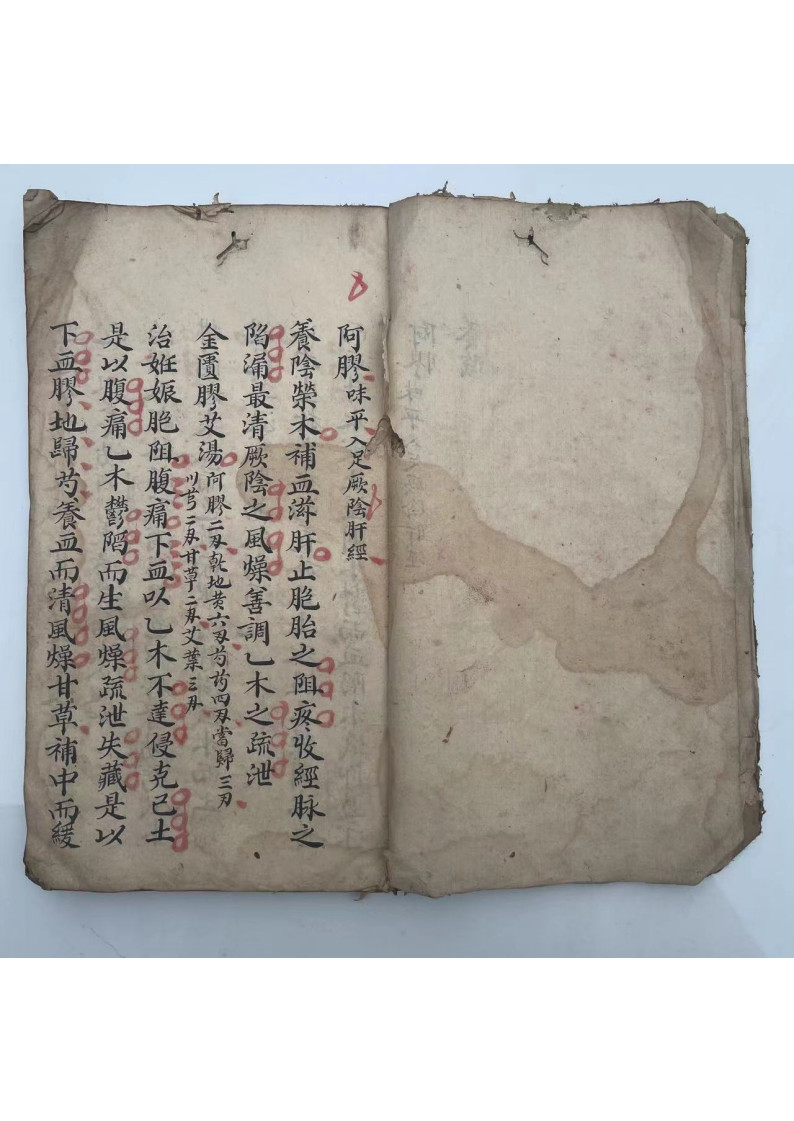 阿膠味平入足厥陰肝經
養陰榮木補血滋肝止胞胎之阻疼收經脉之
陷漏最清厥陰之風燥善調乙木之疏泄
金匱膠艾湯阿膠二刄乾地黄六刄芍药四刄當歸三刃
川芎二刄甘草二刄艾葉三刄
治姙娠胞阻腹痛下血以乙木不達侵克己土
是以腹痛乙木鬱陷而生風燥疏泄失藏是以
下血膠地歸芍養血而清風燥甘草補中而緩